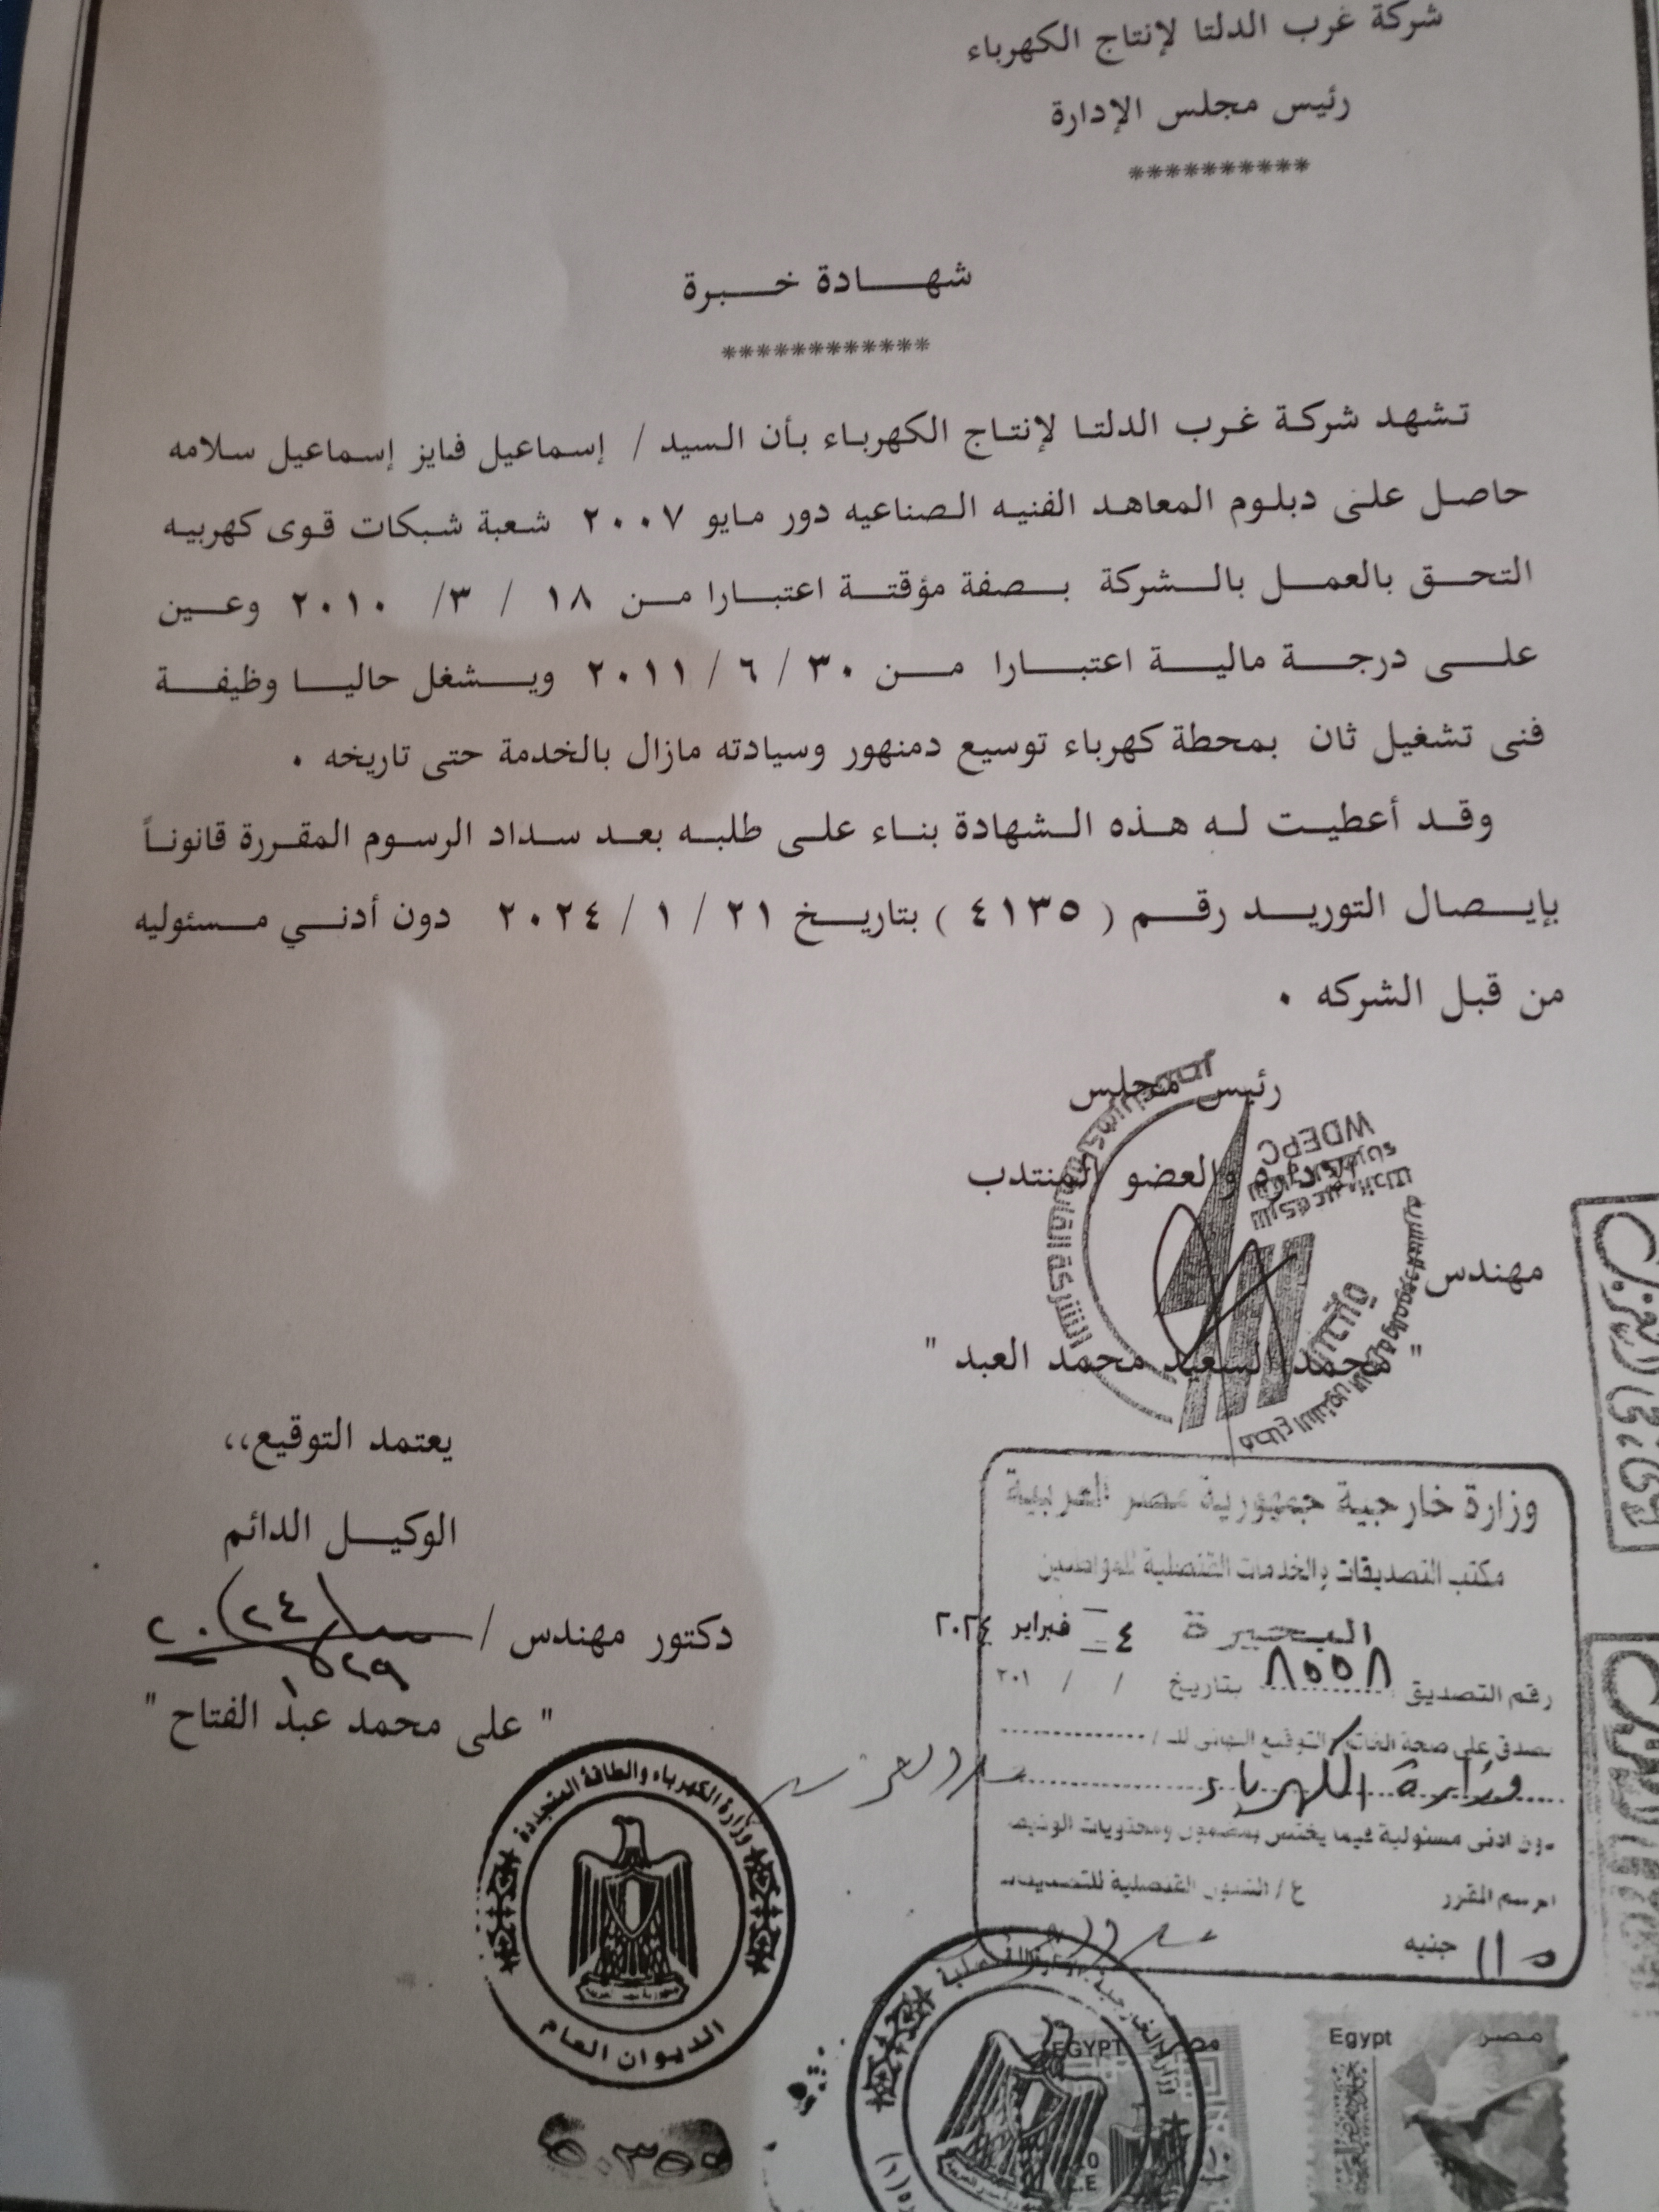 شركة غرب الدلتا لإنتاج الكهرباء
رئيس مجلس الإدارة
**********
شهـــادة خـــبرة
************
تشهد شركة غرب الدلتا لإنتاج الكهرباء بأن السيد / إسماعيل فايز إسماعيل سلامه
حاصل على دبلوم المعاهد الفنيه الصناعيه دور مايو ٢٠٠٧ شعبة شبكات قوى كهربيه
التحق بالعمل بالشركة بصفة مؤقتة اعتبارا من ١٨ / ٣/ ٢٠١٠ وعين
على درجة مالية اعتبارا من ٣٠ / ٦ / ٢٠١١ ويشغل حاليا وظيفة
فنى تشغيل ثان بمحطة كهرباء توسيع دمنهور وسيادته مازال بالخدمة حتى تاريخه .
وقد أعطيت له هذه الشهادة بناء على طلبه بعد سداد الرسوم المقررة قانوناً
بإيصال التوريد رقم ( ٤١٣٥ ) بتاريخ ٢١ / ١ / ٢٠٢٤ دون أدني مسئوليه
من قبل الشركه .
رئيس مجلس
الإدارة والعضو المنتدب
WDEPC
مهندس
" محمد السعيد محمد العبد "
يعتمد التوقيع،،
الوكيل الدائم
دكتور مهندس /
" على محمد عبد الفتاح "
وزارة خارجية جمهورية مصر العربية
مكتب التصديقات والخدمات القنصلية للمواطنين
البحيرة ٤ فبراير ٢٠٢٤
رقم التصديق ٨٥٥٨ بتاريخ / / ٢٠١
نصدق على صحة الخاتم / التوقيع النهائى للـ /
وزارة الكهرباء
دون ادنى مسئولية فيما يختص بمضمون ومحتويات الوثيقة
الرسم المقرر
١١٥ جنيه
وزارة الكهرباء والطاقة المتجددة
الديوان العام
EGYPT مصر
١٠
Egypt مصر